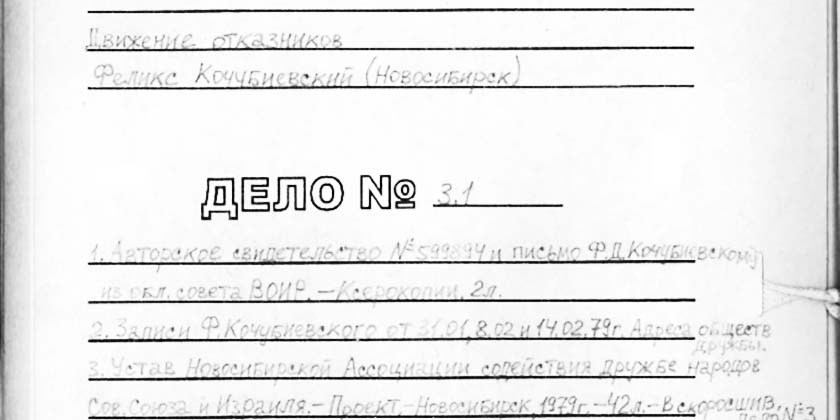 Движение отказников
Феликс Кочубиевский (Новосибирск)
ДЕЛО № 3.1
1. Авторское свидетельство № 599894 и письмо Ф.Д.Кочубиевскому
из обл. совета ВОИР. – Ксерокопии, 2л.
2. Записи Ф.Кочубиевского от 31.01, 8.02 и 14.02.79г. Адреса обществ
дружбы.
3. Устав Новосибирской Ассоциации содействия дружбе народов
Сов. Союза и Израиля. – Проект. – Новосибирск, 1979г. – 42л. – В скоросшив.
Дело №3